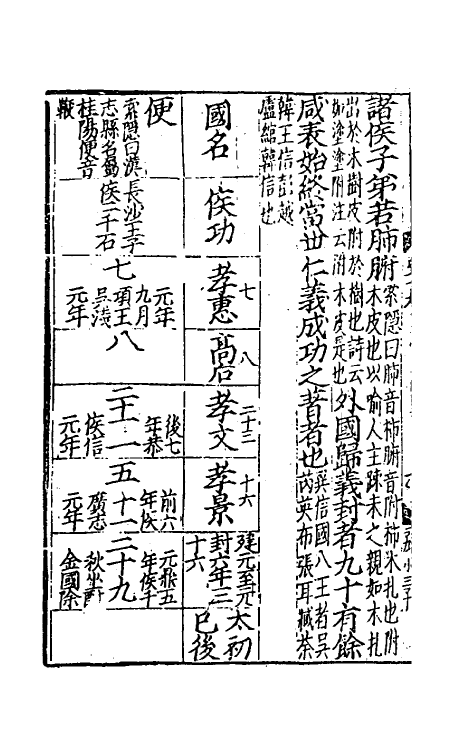 諸侯子弟若肺腑
索隱曰肺音柿腑音附柿木札也附
木皮也以喻人主疎末之親如木札
出於木樹皮附於樹也詩云
如塗塗附注云附木皮是也
外國歸義封者九十有餘
咸表始終當世仁義成功之著者也
異信國八王者吳
芮英布張耳臧荼
韓王信彭越
盧綰韓信也
國名
侯功
孝惠
七
高后
八
孝文
二十三
孝景
十六
建元至元
封六年三
十六
太初
已後
便
索隱曰漢
志縣名屬
桂陽便音
鞭
長沙王子
侯二千石
七
元年
九月
頃王
吳淺
元年
八
二十二
後七
年恭
侯信
元年
一
五
前六
年侯
廣志
元年
十一
二十九
元鼎五
年侯千
秋坐酎
金國除